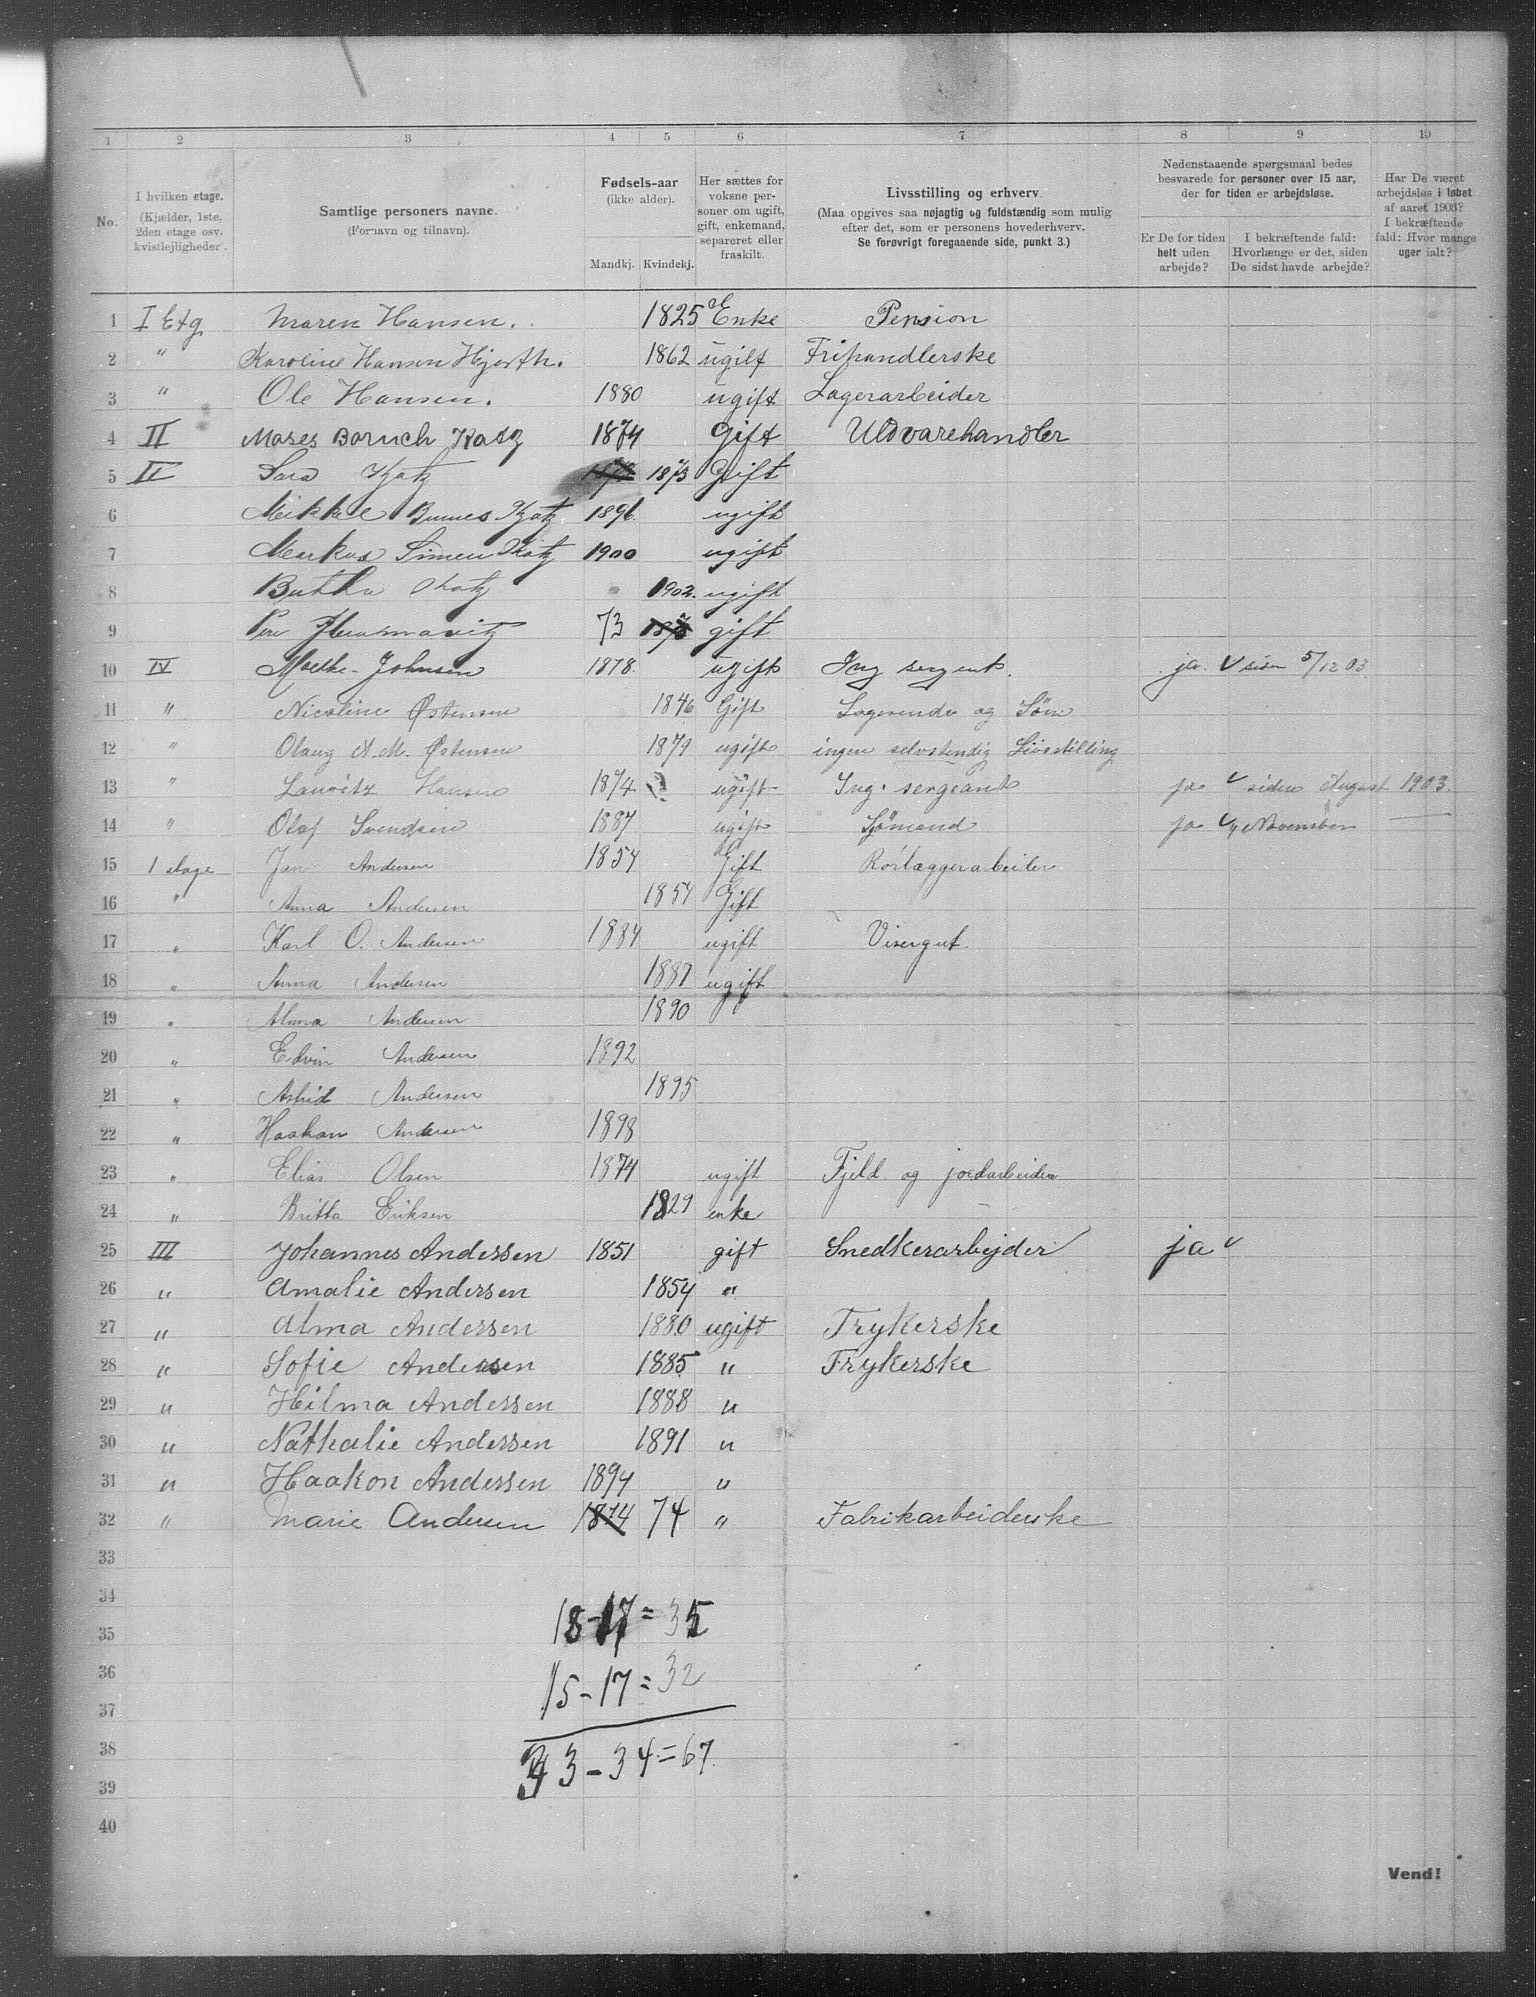 1 2 3 4 5 6 7 8 9 10
No.
I hvilken etage. (Kjælder, 1ste, 2den etage osv. kvistlejligheder.
Samtlige personers navne. (Fornavn og tilnavn).
Fødsels-aar (ikke alder). Mandkj. Kvindekj.
Her sættes for voksne personer om ugift, gift, enkemand, separeret eller fraskilt.
Livsstilling og erhverv. (Maa opgives saa nøjagtig og fuldstændig som mulig efter det, som er personens hovederhverv. Se forøvrigt foregaaende side, punkt 3.)
Nedenstaaende spørgsmaal bedes besvarede for personer over 15 aar, der for tiden er arbejdsløse.
Er De for tiden helt uden arbejde?
I bekræftende fald: Hvorlænge er det, siden De sidst havde arbejde?
Har De været arbejdsløs i løbet af aaret 1903? I bekræftende fald: Hvor mange uger ialt?
1 I Etg Maren Hansen. 1825 Enke Pension
2 " Karoline Hansen Hjorth. 1862 ugift Frihandlerske
3 " Ole Hansen. 1880 ugift Lagerarbeider
4 II Moses Boruch Katz 1874 Gift Uldvarehandler
5 II Sara Katz 1873 Gift
6 Mikkel Katz 1896 ugift
7 Markus Simen Katz 1900 ugift
8 Katz 1902. ugift
9 73 gift
10 IV Johnsen 1878 ugift Ing sergent. ja. siden 5/12 03
11 " Nicoline Østensen 1846 Gift og Søm
12 " Olaug A. M. Østensen 1879 ugift ingen selvstendig Livsstilling
13 " Lauritz Hansen 1874 ugift Ing. sergeant ja siden August 1903.
14 " Olaf Svendsen 1887 ugift Sjømand ja November
15 1 etage Andersen 1854 Gift Rørlæggerarbeider
16 " Anna Andersen 1857 Gift
17 " Karl O. Andersen 1884 ugift Visergut.
18 " Anna Andersen 1887 ugift
19 " Alma Andersen 1890
20 " Edvin Andersen 1892
21 " Astrid Andersen 1895
22 " Haakan Andersen 1898
23 " Elias Olsen 1874 ugift Fjeld og jordarbeider
24 " Britta Eriksen 1829 enke
25 III Johannes Andersen 1851 gift Snedkerarbejder ja
26 " Amalie Andersen 1854 "
27 " Alma Andersen 1880 ugift Trykerske
28 " Sofie Andersen 1885 " Trykerske
29 " Hilma Andersen 1888 "
30 " Nathalie Andersen 1891 "
31 " Haakon Andersen 1894 "
32 " Marie Andersen 1874 74 " Fabrikarbeiderske
33
34
35
36
37
38
39
40
18-17=35
15-17=32
33-34=67.
Vend!